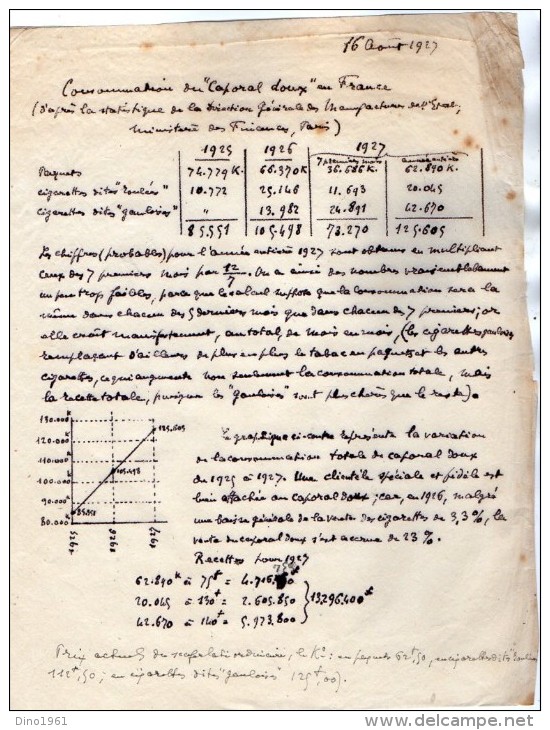 16 Août 1927
Consommation du "Caporal doux" en France
(d'après la statistique de la Direction Générale des Manufactures de l'Etat,
Ministère des Finances, Paris)
1925 1926 1927
7 premiers mois année entière
Paquets 74.779 K. 66.370 K 36.686 K. 62.890 K.
cigarettes dites "roulées" 10.772 25.146 11.693 20.045
cigarettes dites "gauloises" " 13.982 24.891 42.670
85.551 105.498 73.270 125.605
Les chiffres (probables) pour l'année entière 1927 sont obtenus en multipliant
ceux des 7 premiers mois par 12/7. On a ainsi des nombres vraisemblablement
un peu trop faibles, parce que le calcul suppose que la consommation sera la
même dans chacun des 5 derniers mois que dans chacun des 7 premiers; or
elle croît manifestement, au total, de mois en mois, (les cigarettes gauloises
remplaçant d'ailleurs de plus en plus le tabac en paquets et les autres
cigarettes, ce qui augmente non seulement la consommation totale, mais
la recette totale, puisque les "gauloises" sont plus chères que le reste).
130.000 K
120.000 K
110.000 K
100.000 K
90.000 K
80.000 K
125.605
105.498
85.551
1925
1926
1927
Le graphique ci-contre représente la variation
de la consommation totale de caporal doux
de 1925 à 1927. Une clientèle spéciale et fidèle est
bien attachée au caporal doux; car, en 1926, malgré
une baisse générale de la vente des cigarettes de 3,3 %, la
vente du caporal doux s'est accrue de 23 %.
Recettes pour 1927
62.890 K à 75 f = 4.716.750
20.045 à 130 f = 2.605.850
42.670 à 140 f = 5.973.800
13.296.400 f
Prix actuels du scaferlati ordinaire, le K°: en paquets 62 f,50, en cigarettes dites "roulées"
112 f,50; en cigarettes dites "gauloises" 125 f,00).
Dino1961
delcampe.net